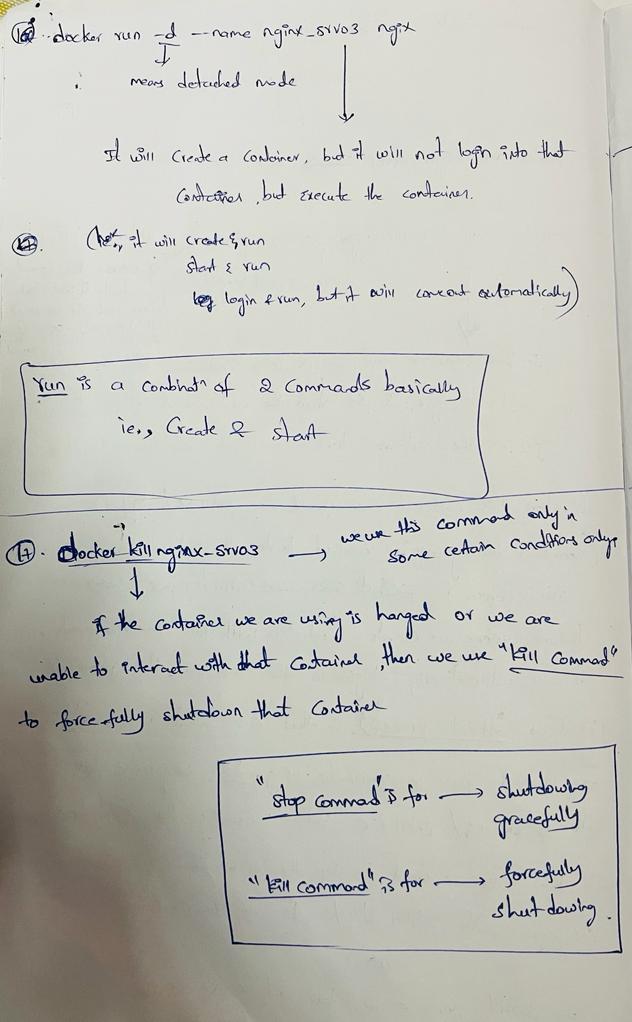 16. docker run -d --name nginx_srv03 ngix
means detached mode
It will create a container, but it will not login into that
container, but execute the container.
(here, it will create & run
start & run
login & run, but it will comeout automatically)
run is a combinatn of 2 commands basically
ie., Create & start
17. docker kill nginx-srv03 → we use this command only in
some certain conditions only,
if the container we are using is hanged or we are
unable to interact with that container, then we use "kill command"
to forcefully shutdown that container
"stop command" is for → shutdowing
gracefully
"kill command" is for → forcefully
shutdowing.